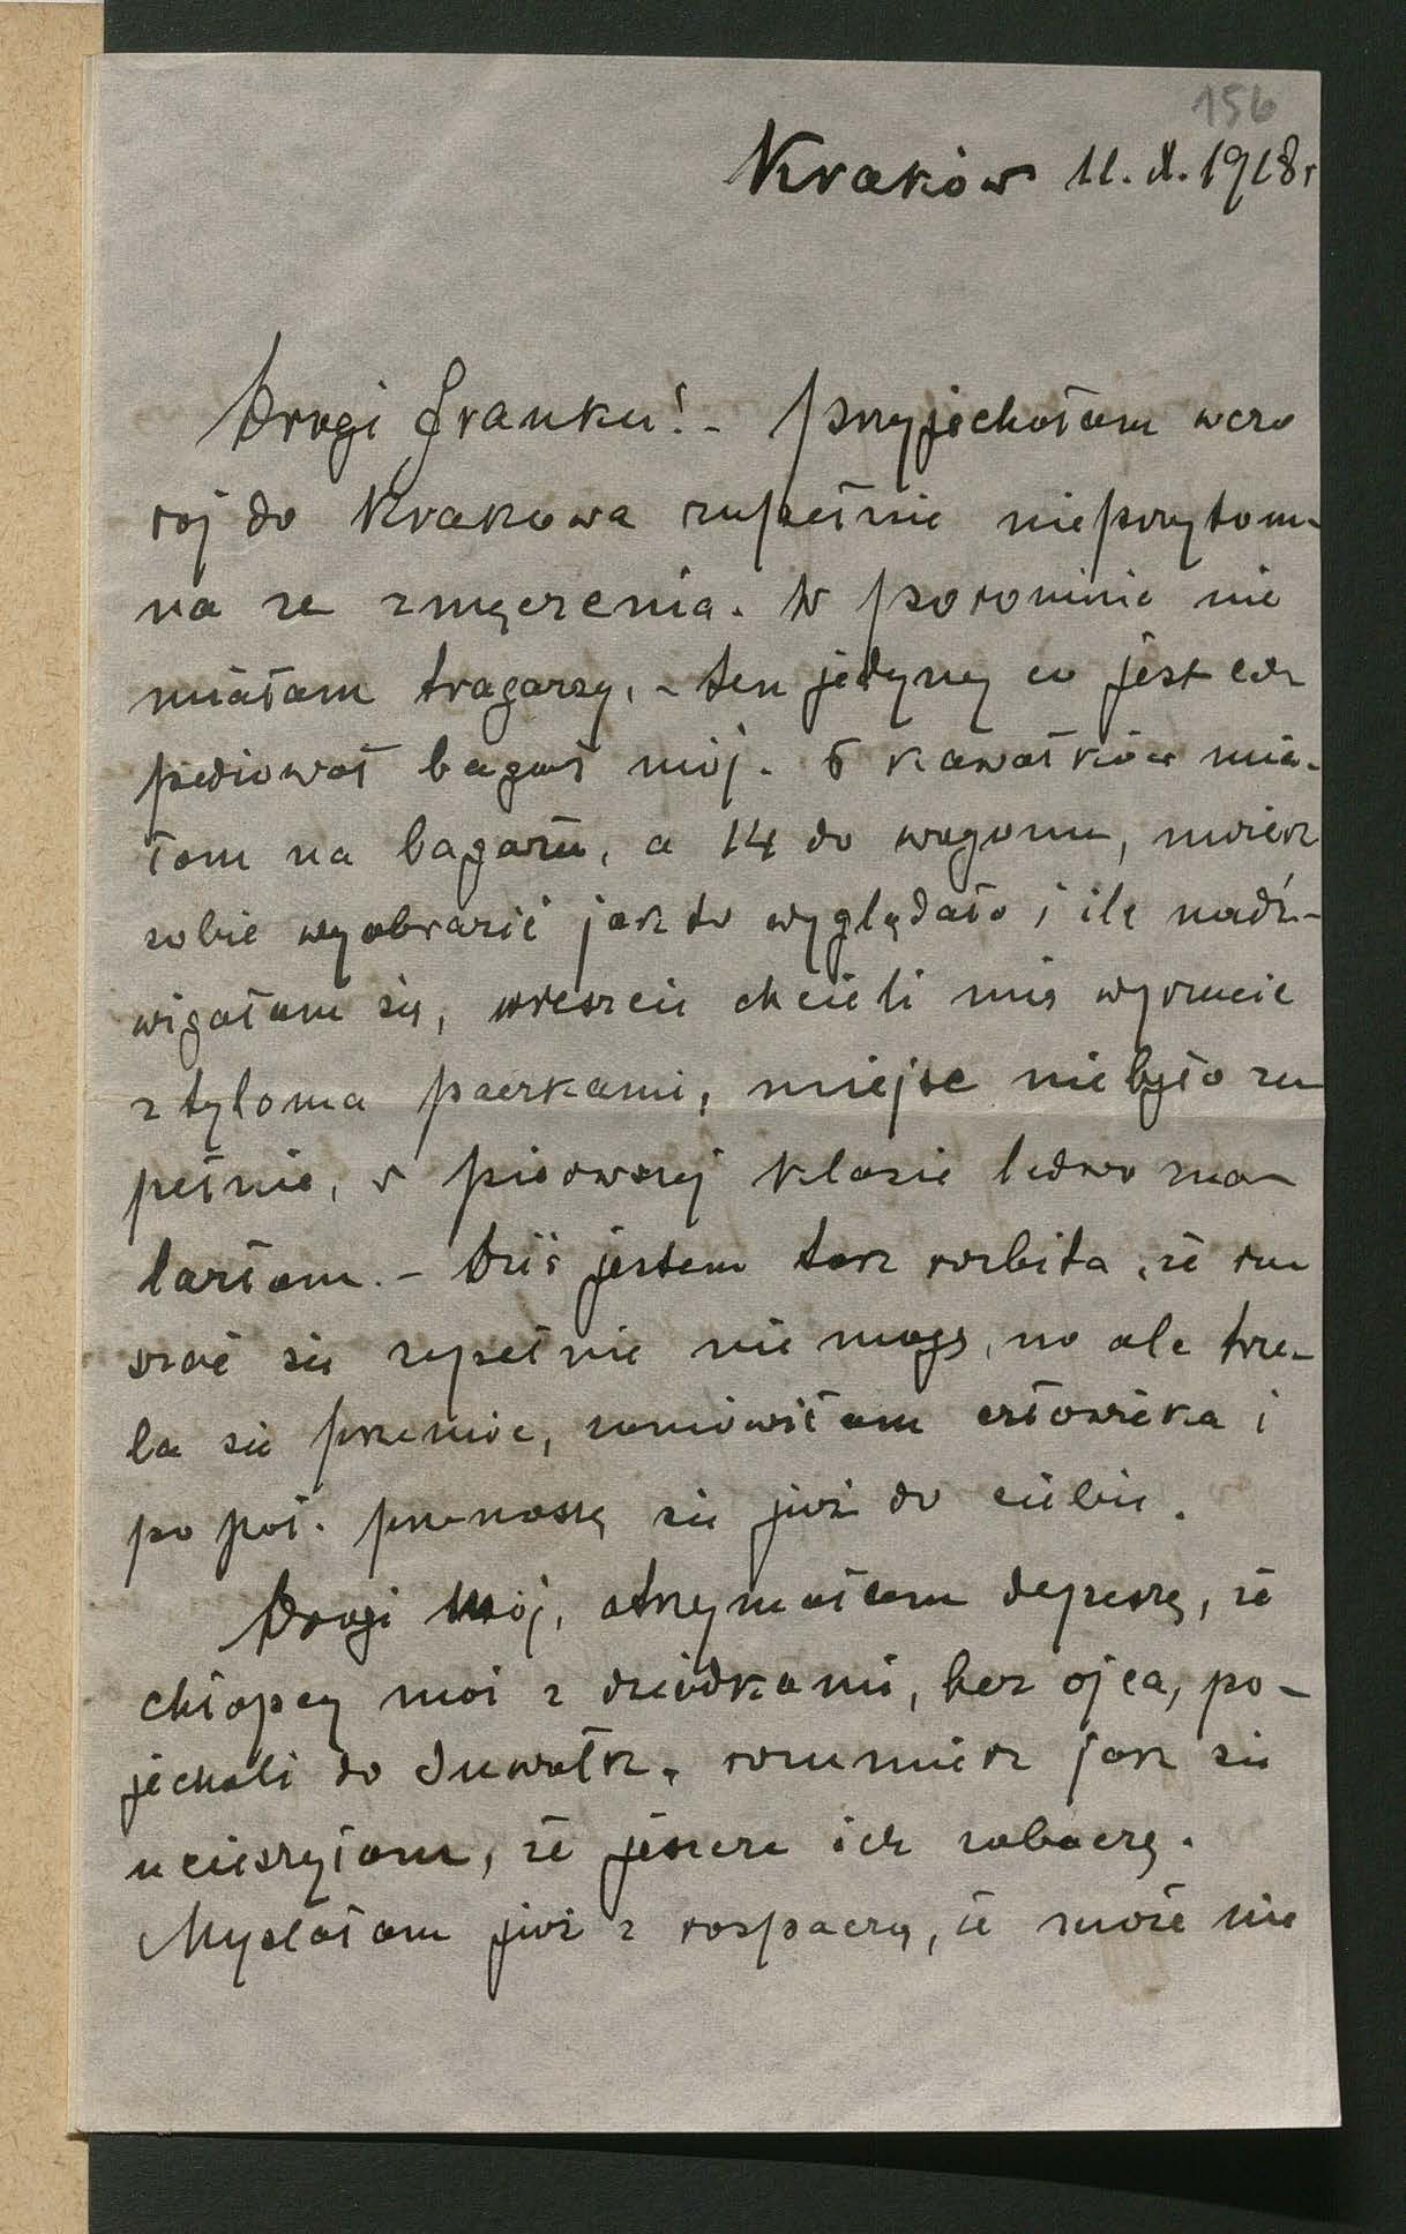 156
Kraków 11. X. 1918 r
Drogi Franku! - Przyjechałam wczo
raj do Krakowa zupełnie nieprzytom-
na ze zmęczenia. W Poroninie nie
miałam tragarzy, - ten jedyny co jest eks
pediował bagaż mój. 6 kawałków mia-
łam na bagażu, a 14 do wagonu, możesz
sobie wyobrazić jak to wyglądało i ile nadź-
wigałam się, wreszcie chcieli mię wyrzucić
z tyloma paczkami, miejsc nie było zu
pełnie, w pierwszej klasie ledwo zna-
lazłam. - Dziś jestem tak rozbita, że ru
szać się zupełnie nie mogę, no ale trze-
ba się przemóc, zamówiłam człowieka i
po poł. przenoszę się już do ciebie.
Drogi Mój, otrzymałam depeszę, że
chłopcy moi z dziadkami, bez ojca, po-
jechali do Suwałk, rozumiesz jak się
ucieszyłam, że jeszcze ich zobaczę.
Myślałam już z rozpaczą, że może nie